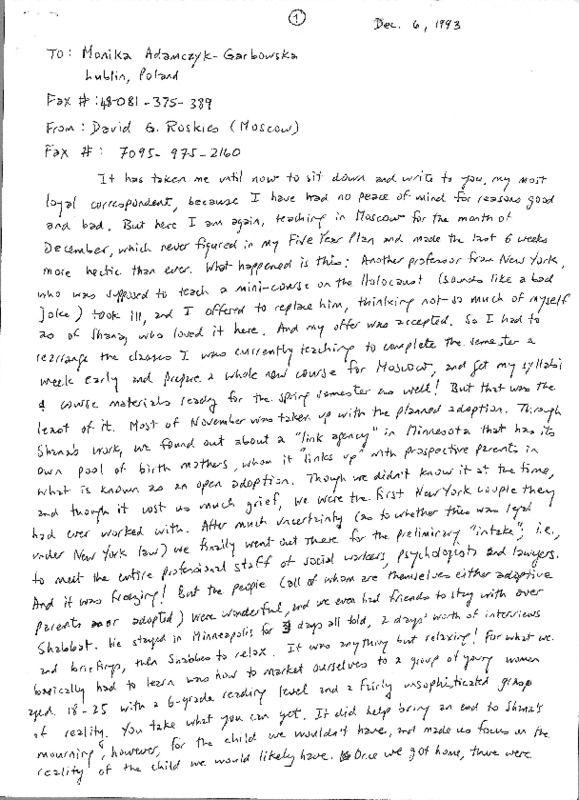 ①
Dec. 6, 1993
To: Monika Adamczyk-Garbowska
Lublin, Poland
Fax #: 48-081-375-389
From: David G. Roskies (Moscow)
Fax #: 7095-975-2160
It has taken me until now to sit down and write to you, my most
loyal correspondent, because I have had no peace of mind for reasons good
and bad. But here I am again, teaching in Moscow for the month of
December, which never figured in my Five Year Plan and made the last 6 weeks
more hectic than ever. What happened is this: Another professor from New York,
who was supposed to teach a mini-course on the Holocaust (sounds like a bad
joke) took ill, and I offered to replace him, thinking not so much of myself
as of Shana, who loved it here. And my offer was accepted. So I had to
rearrange the classes I was currently teaching to complete the semester a
week early and prepare a whole new course for Moscow, and get my syllabi
& course materials ready for the spring semester as well! But that was the
least of it. Most of November was taken up with the planned adoption. Through
Shana's work, we found out about a "link agency" in Minnesota that has its
own pool of birth mothers, whom it "links up" with prospective parents in
what is known as an open adoption. Though we didn't know it at the time,
and though it cost us much grief, we were the first New York couple they
had ever worked with. After much uncertainty (as to whether this was legal
under New York law) we finally went out there for the preliminary "intake", i.e.,
to meet the entire professional staff of social workers, psychologists and lawyers.
And it was freezing! But the people (all of whom are themselves either adoptive
parents or adopted) were wonderful, and we even had friends to stay with over
Shabbat. We stayed in Minneapolis for 3 days all told, 2 days' worth of interviews
and briefings, then Shabbes to relax. It was anything but relaxing! For what we
basically had to learn was how to market ourselves to a group of young women
aged 18-25 with a 6-grade reading level and a fairly unsophisticated grasp
of reality. You take what you can get. It did help bring an end to Shana's
mourning, however, for the child we wouldn't have, and made us focus on the
reality of the child we would likely have. Once we got home, there were